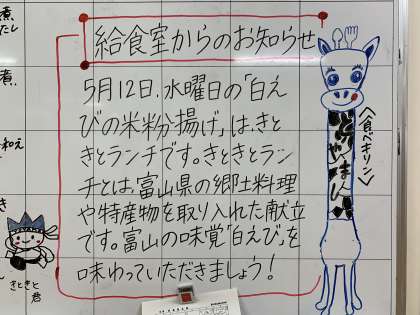 給食室からのお知らせ
5月12日、水曜日の「白え
びの米粉揚げ」は、きと
きとランチです。きときとラン
チとは、富山県の郷土料理
や特産物を取り入れた献立
です。富山の味覚「白えび」を
味わっていただきましょう!
<食べキリン>
きときと
君
煮
煮
和え